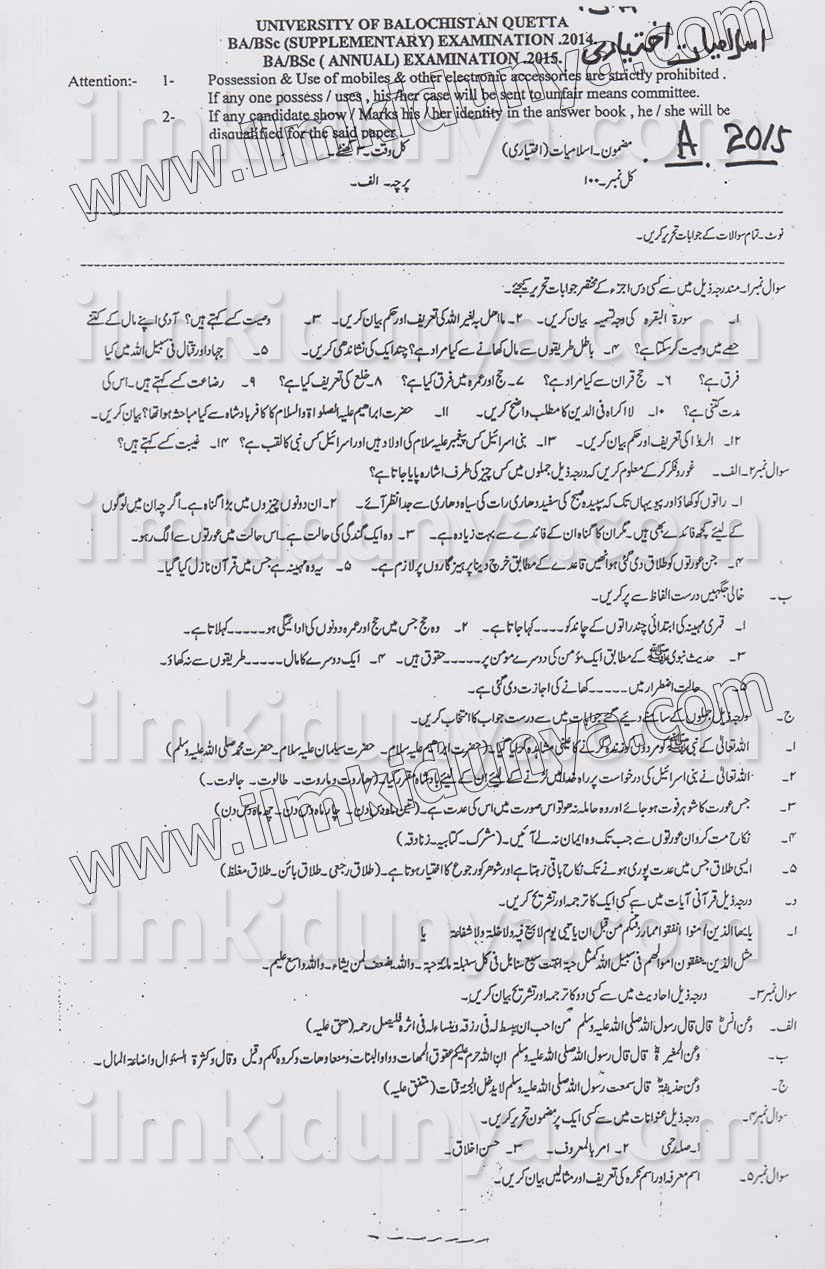 UNIVERSITY OF BALOCHISTAN QUETTA
BA/BSc (SUPPLEMENTARY) EXAMINATION .2014.
BA/BSc ( ANNUAL) EXAMINATION .2015.
اسلامیات اختیاری
Attention:- 1- Possession & Use of mobiles & other electronic accessories are strictly prohibited .
If any one possess / uses , his /her case will be sent to unfair means committee.
2- If any candidate show / Marks his / her identity in the answer book , he / she will be
disqualified for the said paper.
A 2015
مضمون۔ اسلامیات (اختیاری) کل وقت۔ ۳ گھنٹے۔
کل نمبر۔ ۱۰۰ پرچہ۔ الف۔
نوٹ۔ تمام سوالات کے جوابات تحریر کریں۔
سوال نمبر۱۔ مندرجہ ذیل میں سے کسی دس اجزء کے مختصر جوابات تحریر کیجئے۔
۱۔ سورۃ البقرہ کی وجہ تسمیہ بیان کریں۔ ۲۔ مااھل بہ لغیر اللہ کی تعریف اور حکم بیان کریں۔ ۳۔ وصیت کسے کہتے ہیں؟ آدمی اپنے مال کے کتنے
حصے میں وصیت کر سکتا ہے؟ ۴۔ باطل طریقوں سے مال کھانے سے کیا مراد ہے؟ چند ایک کی نشاندھی کریں۔ ۵۔ جہاد اور قتال فی سبیل اللہ میں کیا
فرق ہے؟ ۶۔ حج قران سے کیا مراد ہے؟ ۷۔ حج اور عمرہ میں فرق کیا ہے؟ ۸۔ خلع کی تعریف کیا ہے؟ ۹۔ رضاعت کسے کہتے ہیں۔ اس کی
مدت کتنی ہے؟ ۱۰۔ لا اکراہ فی الدین کا مطلب واضح کریں۔ ۱۱۔ حضرت ابراھیم علیہ الصلواۃ والسلام کا کافر بادشاہ سے کیا مباحثہ ہوا تھا؟ بیان کریں۔
۱۲۔ الربڈا کی تعریف اور حکم بیان کریں۔ ۱۳۔ بنی اسرائیل کس پیغمبر علیہ سلام کی اولاد ہیں اور اسرائیل کس نبی کا لقب ہے؟ ۱۴۔ غیبت کسے کہتے ہیں؟
سوال نمبر۲۔ الف۔ غور و فکر کر کے معلوم کریں کہ درجہ ذیل جملوں میں کس چیز کی طرف اشارہ پایا جاتا ہے؟
۱۔ راتوں کو کھاؤ اور پیو یہاں تک کہ سپیدہ صبح کی سفید دھاری رات کی سیاہ دھاری سے جدا نظر آئے۔ ۲۔ ان دونوں چیزوں میں بڑا گناہ ہے۔ اگرچہ ان میں لوگوں
کے لیئے کچھ فائدے بھی ہیں۔ مگر ان کا گناہ ان کے فائدے سے بہت زیادہ ہے۔ ۳۔ وہ ایک گندگی کی حالت ہے۔ اس حالت میں عورتوں سے الگ رہو۔
۴۔ جن عورتوں کو طلاق دی گئی ہو انھیں قاعدے کے مطابق خرچ دینا پرہیز گاروں پر لازم ہے۔ ۵۔ یہ وہ مہینہ ہے جس میں قرآن نازل کیا گیا۔
ب۔ خالی جگہیں درست الفاظ سے پر کریں۔
۱۔ قمری مہینہ کی ابتدائی چند راتوں کے چاند کو۔۔۔۔کہا جاتا ہے۔ ۲۔ وہ حج جس میں حج اور عمرہ دونوں کی ادائیگی ہو۔۔۔۔۔کہلاتا ہے۔
۳۔ حدیث نبوی ﷺ کے مطابق ایک مؤمن کی دوسرے مومن پر۔۔۔۔۔حقوق ہیں۔ ۴۔ ایک دوسرے کا مال۔۔۔۔۔طریقوں سے نہ کھاؤ۔
۵۔ حالت اضطرار میں۔۔۔۔۔کھانے کی اجازت دی گئی ہے۔
ج۔ درجہ ذیل جملوں کے سامنے دیئے گئے جوابات میں سے درست جواب کا انتخاب کریں۔
۱۔ اللہ تعالیٰ کے نبی ﷺ کو مردوں کو زندہ کرنے کا عینی مشاہدہ کرایا گیا۔ (حضرت ابراھیم علیہ سلام۔ حضرت سلیمان علیہ سلام۔ حضرت محمد صلی اللہ علیہ وسلم)
۲۔ اللہ تعالیٰ نے بنی اسرائیل کی درخواست پر راہ خدا میں لڑنے کے لیئے ان کے لیئے بادشاہ مقرر کیا۔ (ھاروت و ماروت۔ طالوت۔ جالوت۔)
۳۔ جس عورت کا شوہر فوت ہو جائے اور وہ حاملہ نہ ہو تو اس صورت میں اس کی عدت ہے۔ (تین ماہ دس دن۔ چار ماہ دس دن۔ چھ ماہ دس دن)
۴۔ نکاح مت کرو ان عورتوں سے جب تک وہ ایمان نہ لے آئیں۔ (مشرک۔ کتابیہ۔ زنادقہ)
۵۔ ایسی طلاق جس میں عدت پوری ہونے تک نکاح باقی رہتا ہے اور شوھر کو رجوع کا اختیار ہوتا ہے۔ (طلاق رجعی۔ طلاق بائن۔ طلاق مغلظ)
د۔ درجہ ذیل قرآنی آیات میں سے کسی ایک کا ترجمہ اور تشریح کریں۔
۱۔ یایھا الذین امنوا انفقوا مما رزقنکم من قبل ان یاتیی یوم لا بیع فیہ ولا خلۃ ولا شفاعۃ یا
مثل الذین ینفقون اموالھم فی سبیل اللہ کمثل حبۃ انبتت سبع سنابل فی کل سنبلۃ مائۃ حبۃ۔ واللہ یضعف لمن یشاء۔ واللہ واسع علیم۔
سوال نمبر۳۔ درجہ ذیل احادیث میں سے کسی دو کا ترجمہ اور تشریح بیان کریں۔
الف۔ وعن انسؓ قال قال رسول اللہ صلی اللہ علیہ وسلم من احب ان یبسط لہ فی رزقہ وینساء لہ فی اثرہ فلیصل رحمہ (متفق علیہ)
ب۔ وعن المغیرۃؓ قال قال رسول اللہ صلی اللہ علیہ وسلم ان اللہ حرم علیکم عقوق المھات وواد البنات ومنعاوھات وکروہ لکم وقیل وقال وکثرۃ السؤال واضاعۃ المال۔
ج۔ وعن حذیفۃؓ قال سمعت رسول اللہ صلی اللہ علیہ وسلم لا یدخل الجنۃ قتات (متفق علیہ)
سوال نمبر۴۔ درجہ ذیل عنوانات میں سے کسی ایک پر مضمون تحریر کریں۔
۱۔ صلہ رحمی ۲۔ امر بالمعروف۔ ۳۔ حسن اخلاق۔
سوال نمبر۵۔ اسم معرفہ اور اسم نکرہ کی تعریف اور مثالیں بیان کریں۔
www.ilmkidunya.com
www.ilmkidunya.com
ilmkidunya.com
ilmkidunya.com
ilmkidunya.com
ilmkidunya.com
ilmkidunya.com
ilmkidunya.com